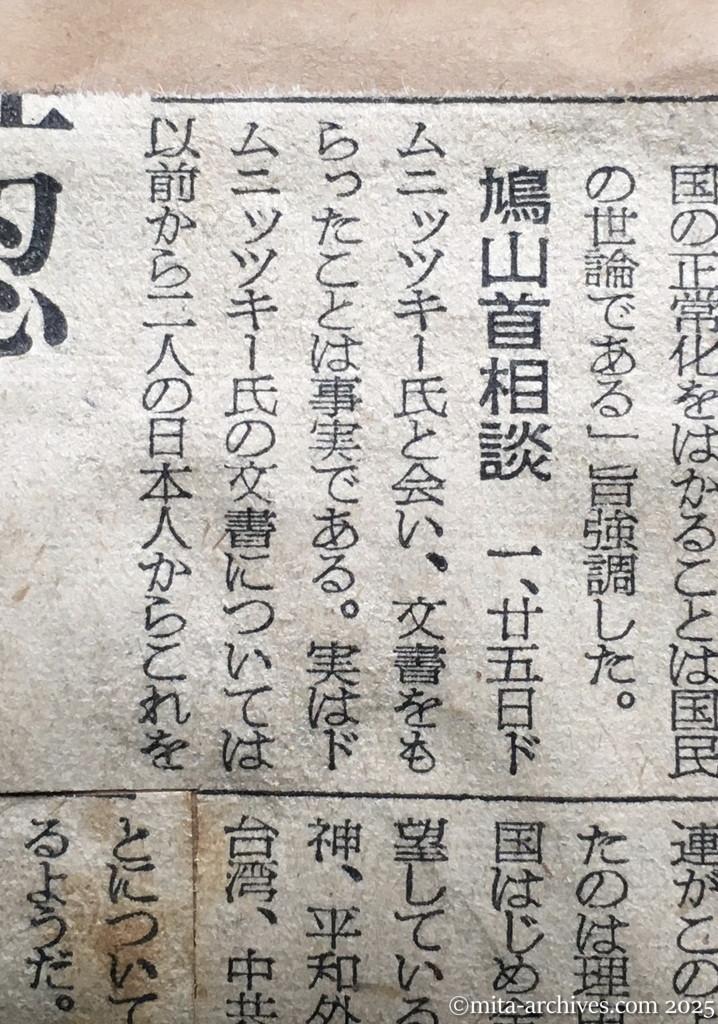 国の正常化をはかることは国民
の世論である」旨強調した。
鳩山首相談　一、廿五日ド
ムニッツキー氏と会い、文書をも
らったことは事実である。実はド
ムニッツキー氏の文書については
以前から二人の日本人からこれを
認
連がこの
たのは理由
国はじめ
望している
神、平和外
台湾、中共
とについて
るようだ。
©mita-archives.com 2025